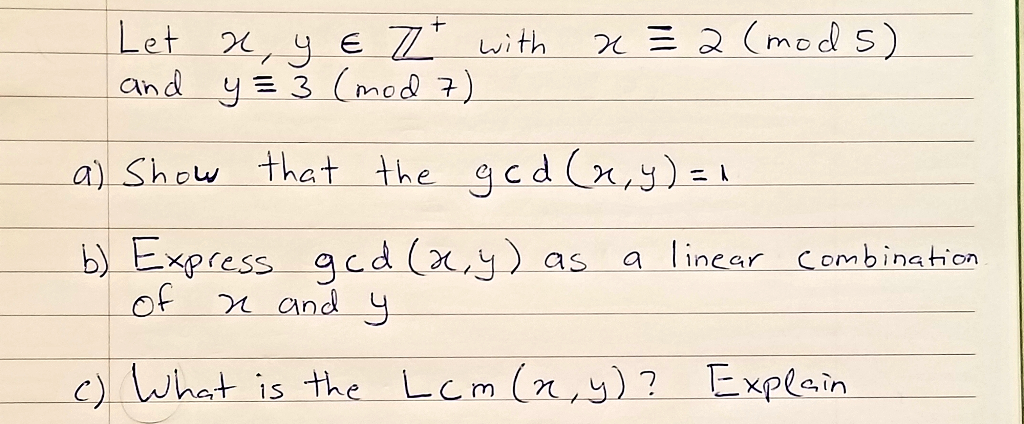 Let x, y ∈ ℤ⁺ with x ≡ 2 (mod 5)
and y ≡ 3 (mod 7)
a) Show that the gcd(x,y) = 1
b) Express gcd(x,y) as a linear combination
of x and y
c) What is the Lcm(x,y)? Explain